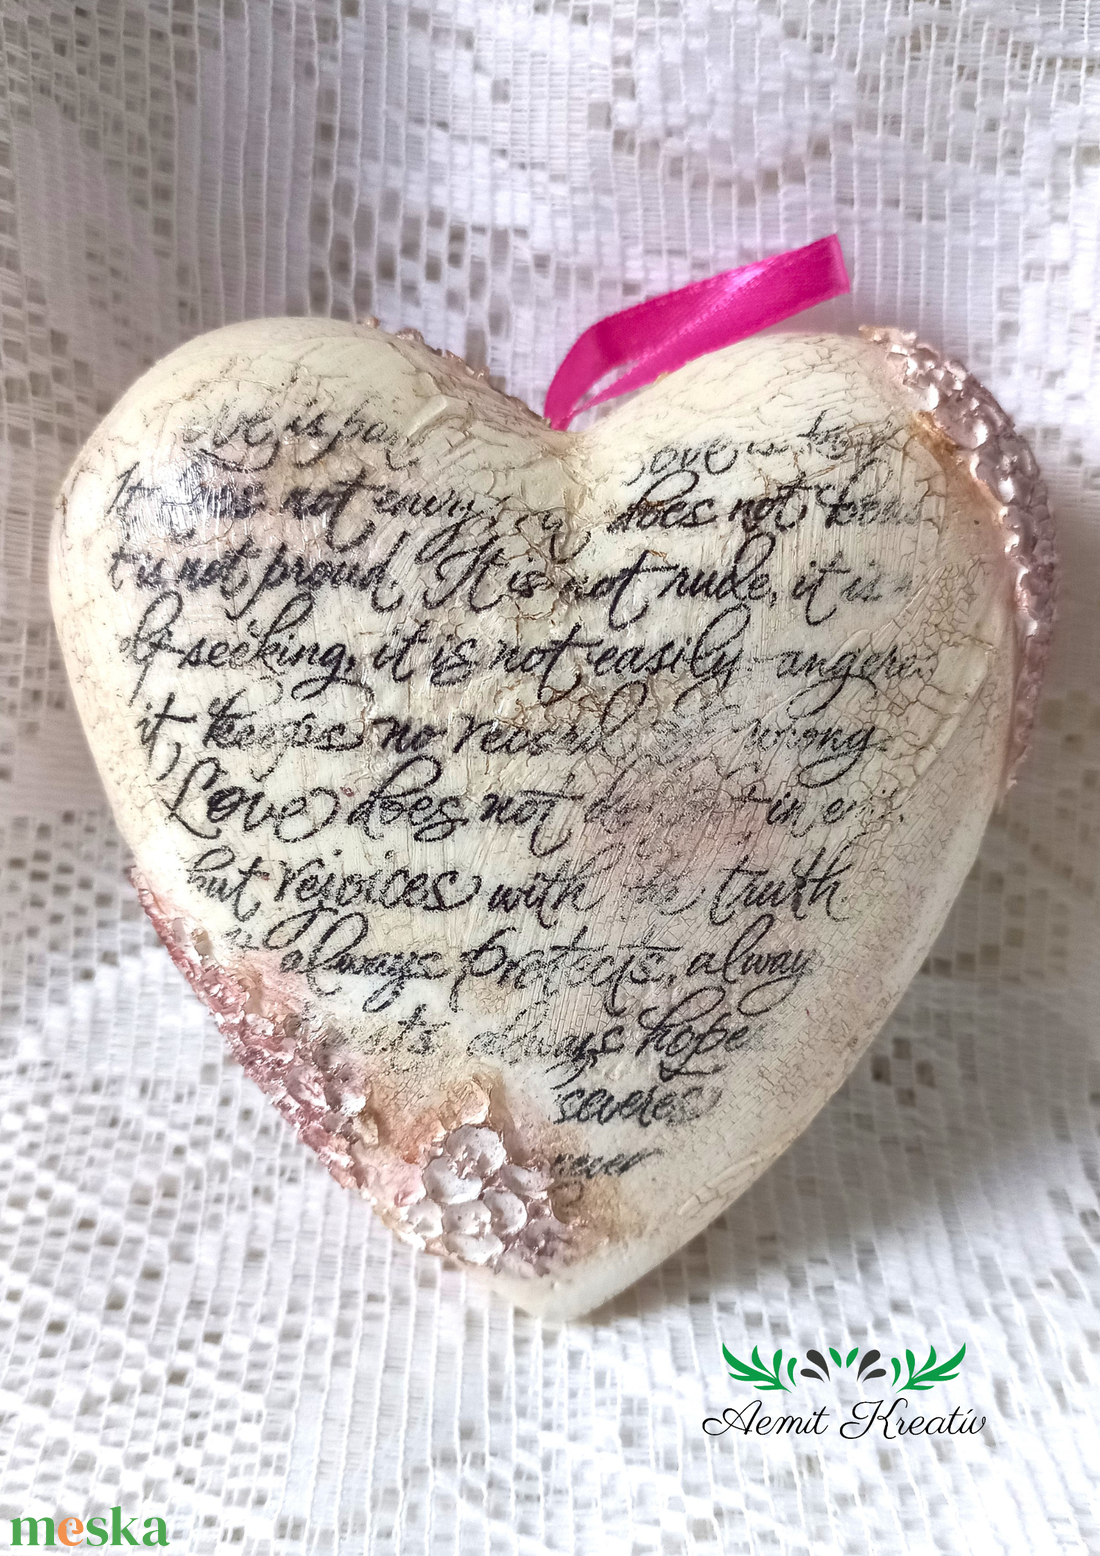 ove is pa
Love is
It does not envy, does not
t is not proud. It is not rude, it is
lf seeking, it is not easily angere
it keeps no record of wrong
Love does not in evil.
but rejoices with the truth
always protects, alway
ts always hope
severes
never
Aemit Kreatív
meska